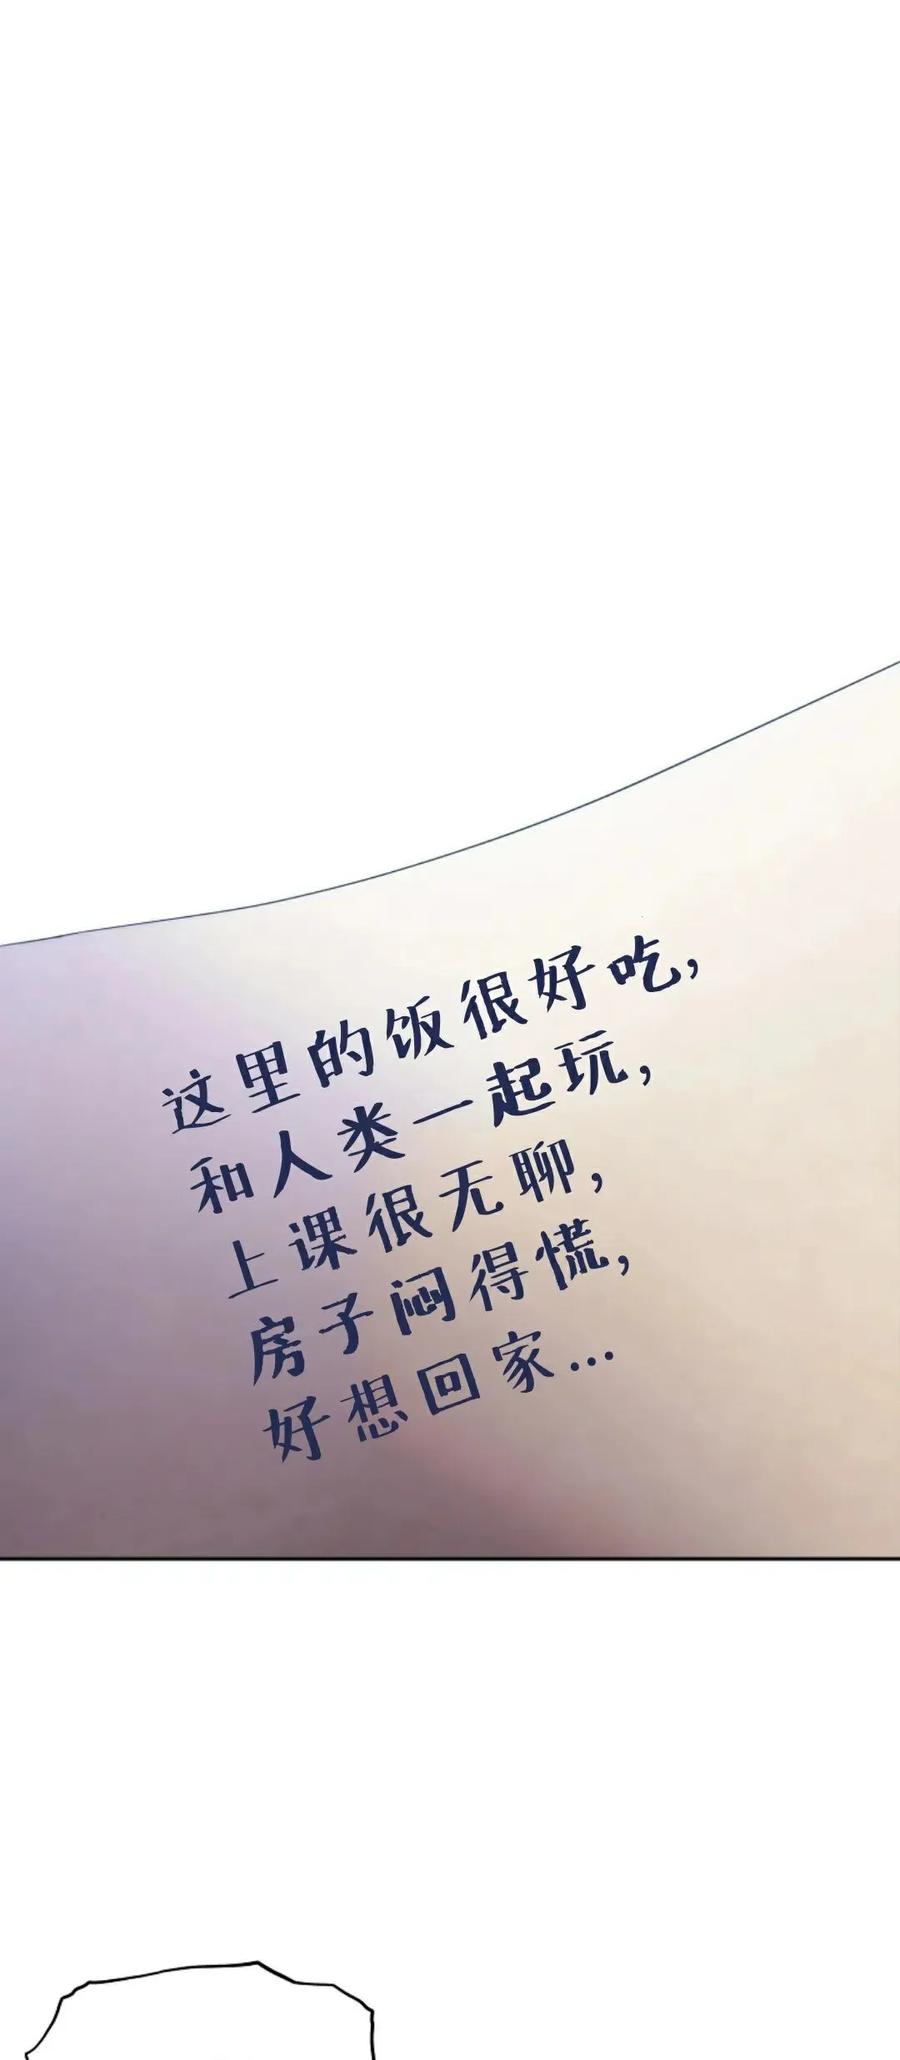 这里的饭很好吃，
和人类一起玩，
上课很无聊，
房子闷得慌，
好想回家…